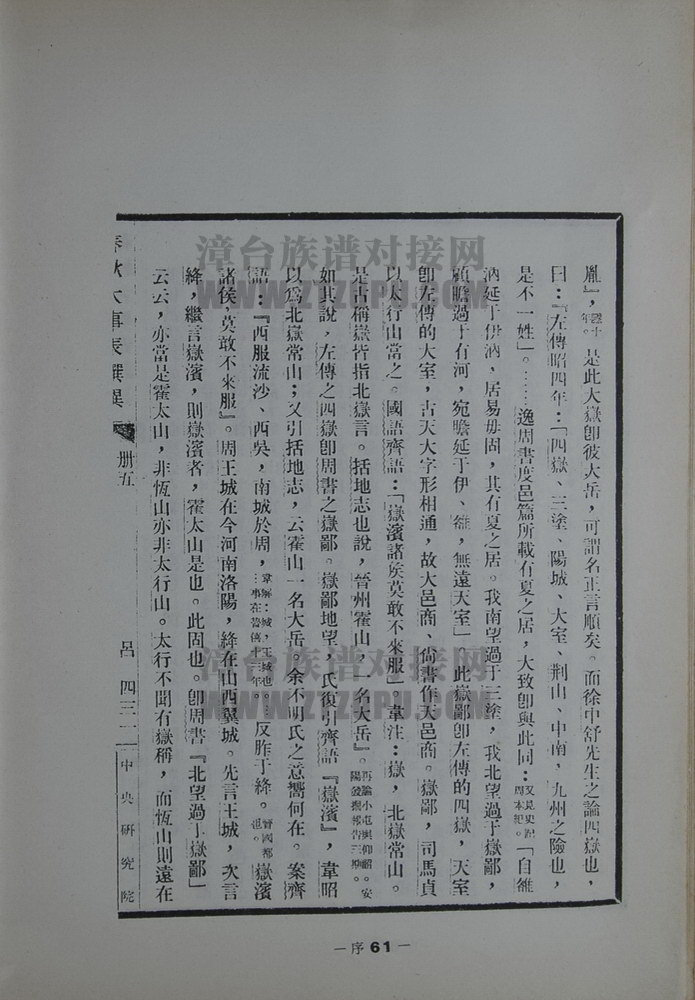 胤』，年。是此大嶽卽彼大岳，可謂名正言順矣。而徐中舒先生之論四嶽也，
曰：『左傳昭四年：「四嶽、三塗、陽城、大室、荆山、中南，九州之險也，
是不一姓」。……逸周書度邑篇所載有夏之居，大致卽與此同：又見史記周本紀。「自雒
汭延于伊汭，居易毋固，其有夏之居。我南望過于三塗，我北望過于嶽鄙，
顧瞻過于有河，宛瞻延于伊、雒，無遠天室」此嶽鄙卽左傳的四嶽，天室
卽左傳的大室，古天大字形相通，故大邑商、尙書作天邑商。嶽鄙，司馬貞
以太行山當之。國語齊語：「嶽濱諸侯莫敢不來服」韋注：嶽，北嶽常山。
是古稱嶽皆指北嶽言。括地志也說，晉州霍山，一名大岳』。再論小屯與仰韶。安陽發掘報告三期。
如其說，左傳之四嶽卽周書之嶽鄙。嶽鄙地望，氏復引齊語『嶽濱』，韋昭
以爲北嶽常山；又引括地志，云霍山一名大岳。余不明氏之意嚮何在。案齊
語：『西服流沙、西吳，南城於周，韋解：城，王城也…事在魯僖十三年。…反胙于絳。晉國都也。嶽濱
諸侯，莫敢不來服』。周王城在今河南洛陽，絳在山西翼城。先言王城，次言
絳，繼言嶽濱，則嶽濱者，霍太山是也。此固也。卽周書『北望過于嶽鄙』
云云，亦當是霍太山，非恆山亦非太行山。太行不聞有嶽稱，而恆山則遠在
春秋大事表譔異 册五 呂 四三一 中央研究院
—序 61—
漳台族谱对接网
WWW.ZTZUPU.COM
漳台族谱对接网
WWW.ZTZUPU.COM